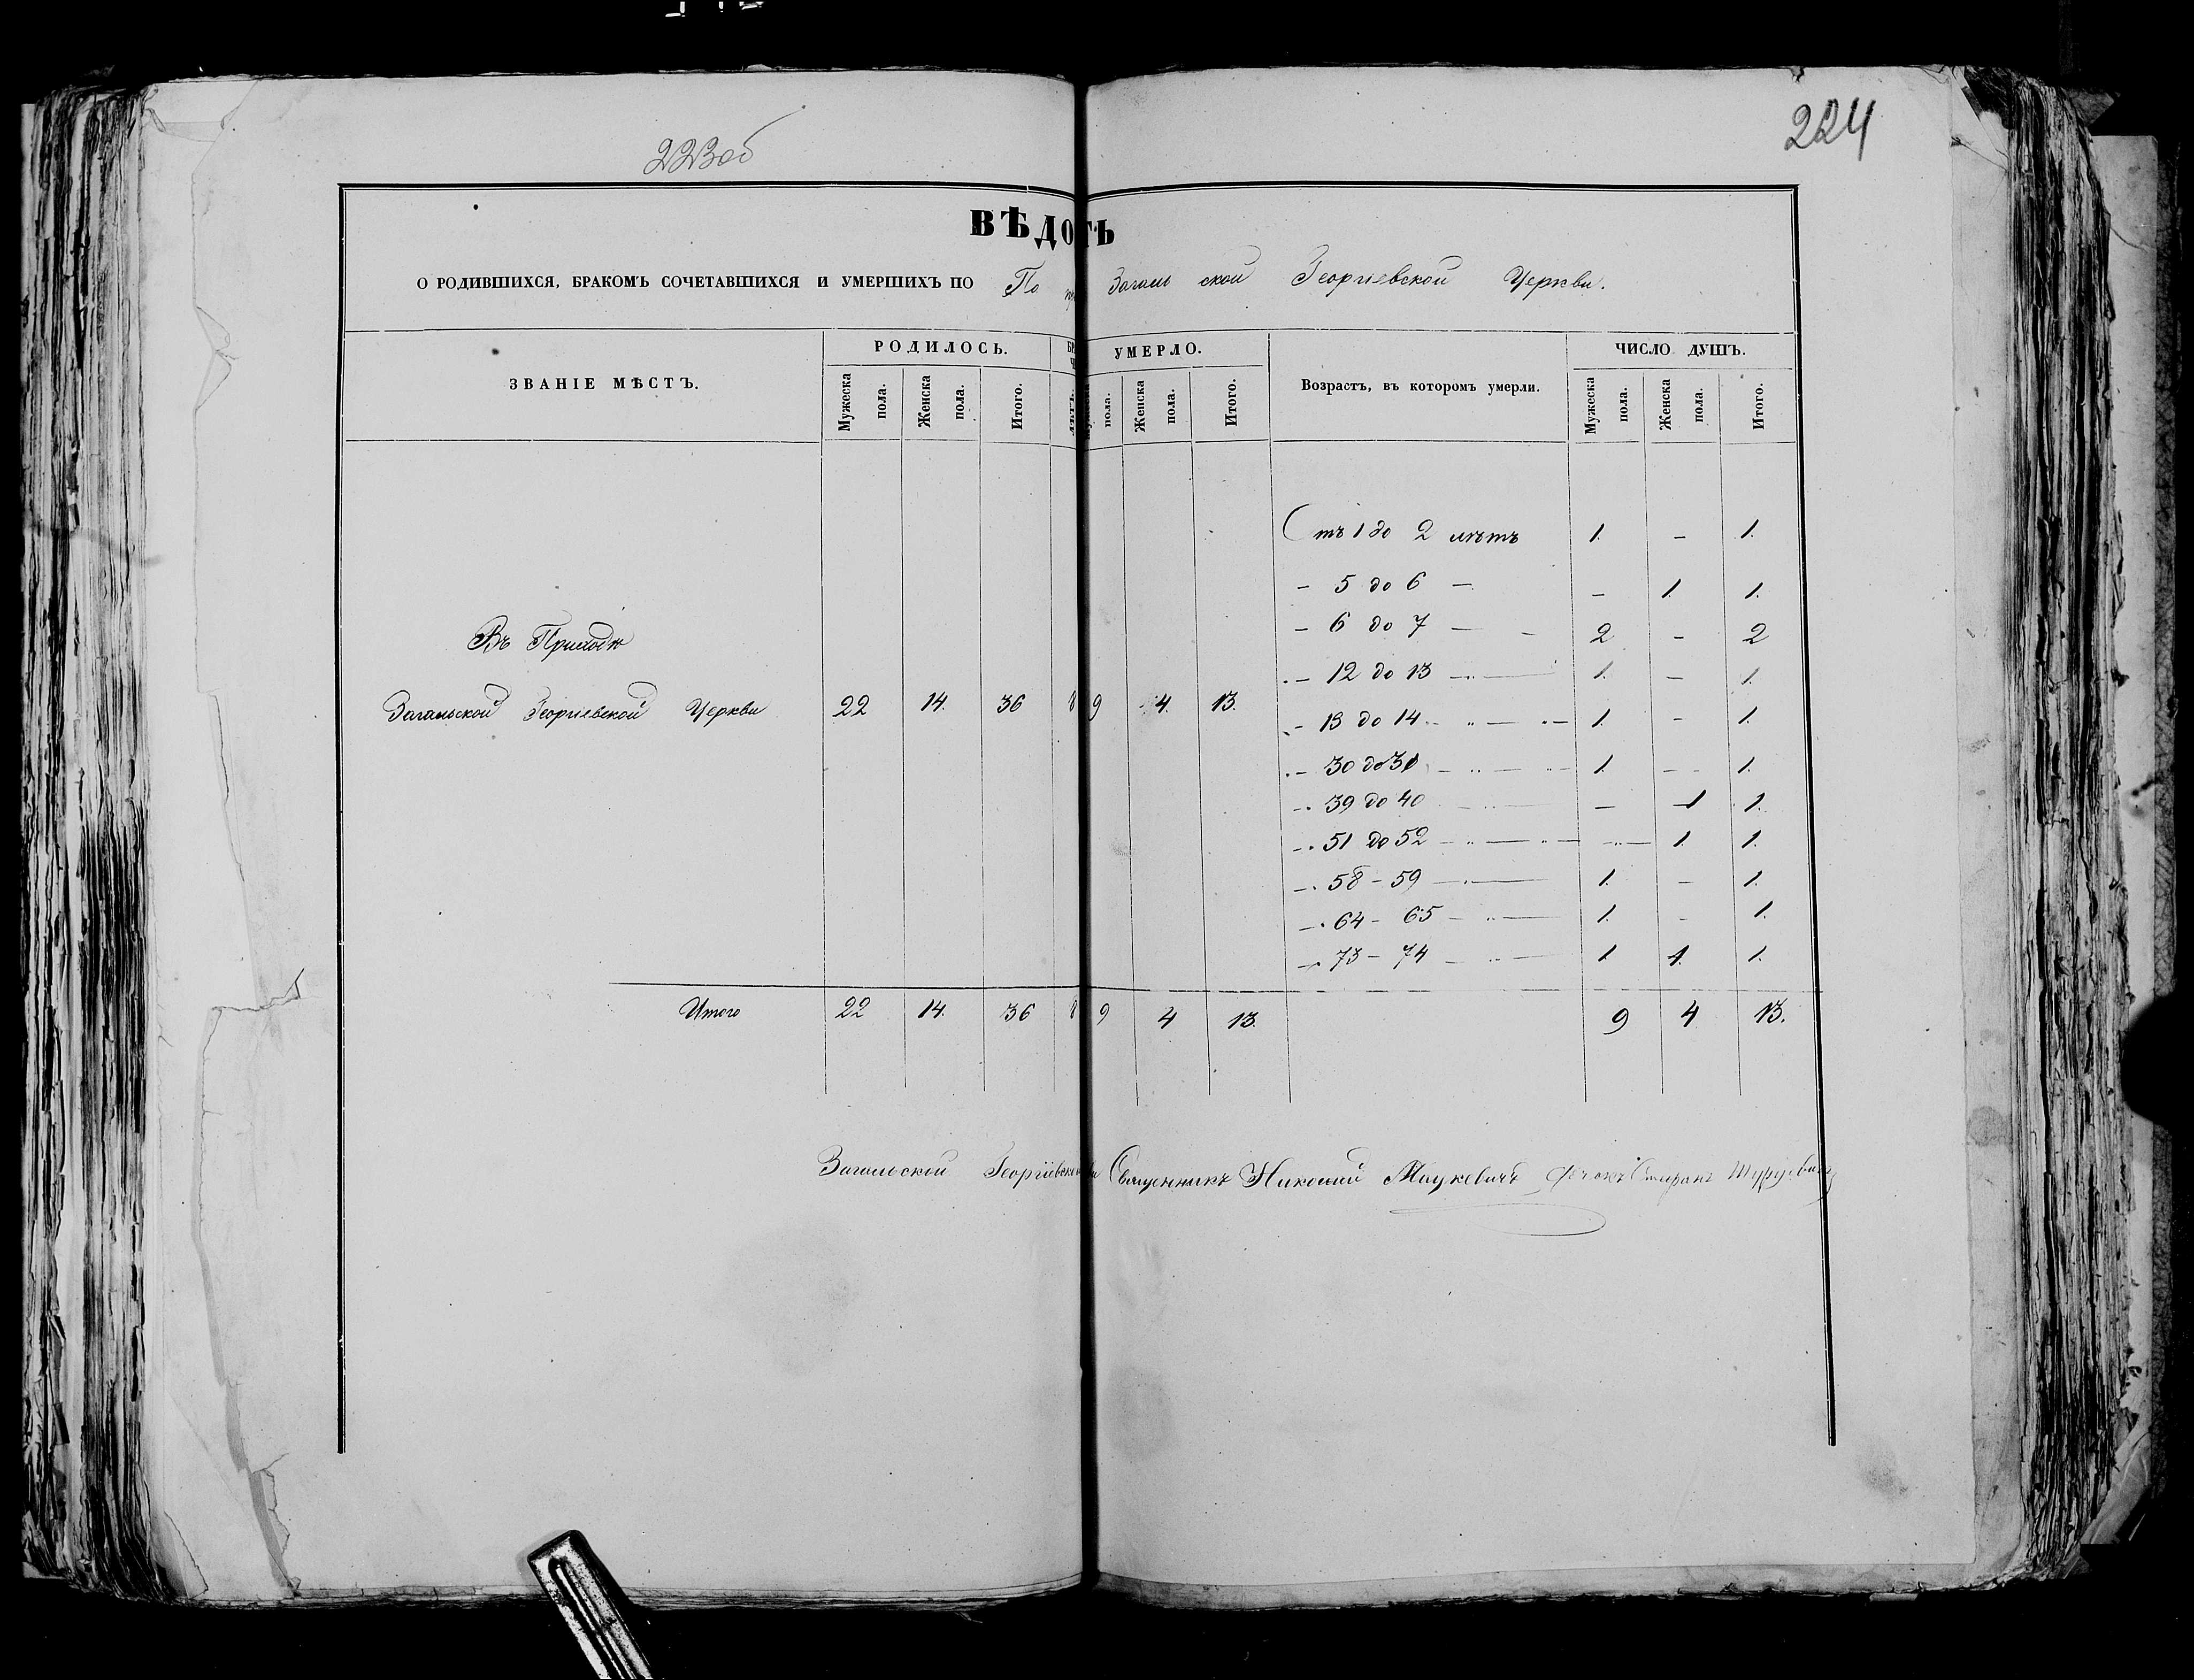 223об
224
ВѢДО ТЬ
О РОДИВШИХСЯ, БРАКОМЪ СОЧЕТАВШИХСЯ И УМЕРШИХЪ ПО По Загальской Георгіевской Церкви.
ЗВАНІЕ МѢСТЪ.
РОДИЛОСЬ.
Мужеска пола.
Женска пола.
Итого.
УМЕРЛО.
пола.
Женска пола.
Итого.
Возрастъ, въ которомъ умерли.
ЧИСЛО ДУШЪ.
Мужеска пола.
Женска пола.
Итого.
Отъ 1 до 2 лѣтъ 1. – 1.
– 5 до 6 – – 1 1.
– 6 до 7 – – 2 – 2
– 12 до 13 – 1. – 1.
– 13 до 14 – 1. – 1.
– 30 до 31 – 1. – 1.
– 39 до 40 – – 1 1.
– 51 до 52 – – 1. 1.
– 58 – 59 – 1. – 1.
– 64 – 65 – 1. – 1.
– 73 – 74 – 1 1. 1.
Въ Приходѣ
Загальской Георгіевской Церкви 22 14. 36 8 9 4. 13.
Итого 22 14. 36 8 9 4 13. 9 4 13.
Загальской Георгіевской Священникъ Николай Мацкевичъ